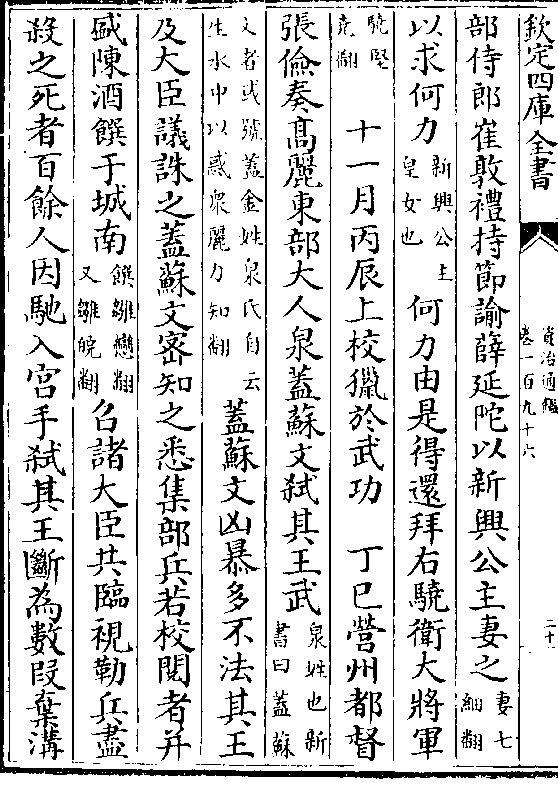 欽定四庫全書
資治通鑑
卷一百九十六
二十
部侍郎崔敦禮持節諭薛延陀以新興公主妻之妻七細翻
以求何力新興公主皇女也何力由是得還拜右驍衛大將軍
驍堅堯翻　十一月丙辰上校獵於武功　丁巳營州都督
張儉奏髙麗東部大人泉蓋蘇文弑其王武泉姓也新書曰蓋蘇
文者或號蓋金姓泉氏自云生水中以惑衆麗力知翻蓋蘇文凶暴多不法其王
及大臣議誅之蓋蘇文密知之悉集部兵若校閱者并
盛陳酒饌于城南饌雛戀翻又雛皖翻召諸大臣共臨視勒兵盡
殺之死者百餘人因馳入宫手弑其王斷為數段棄溝